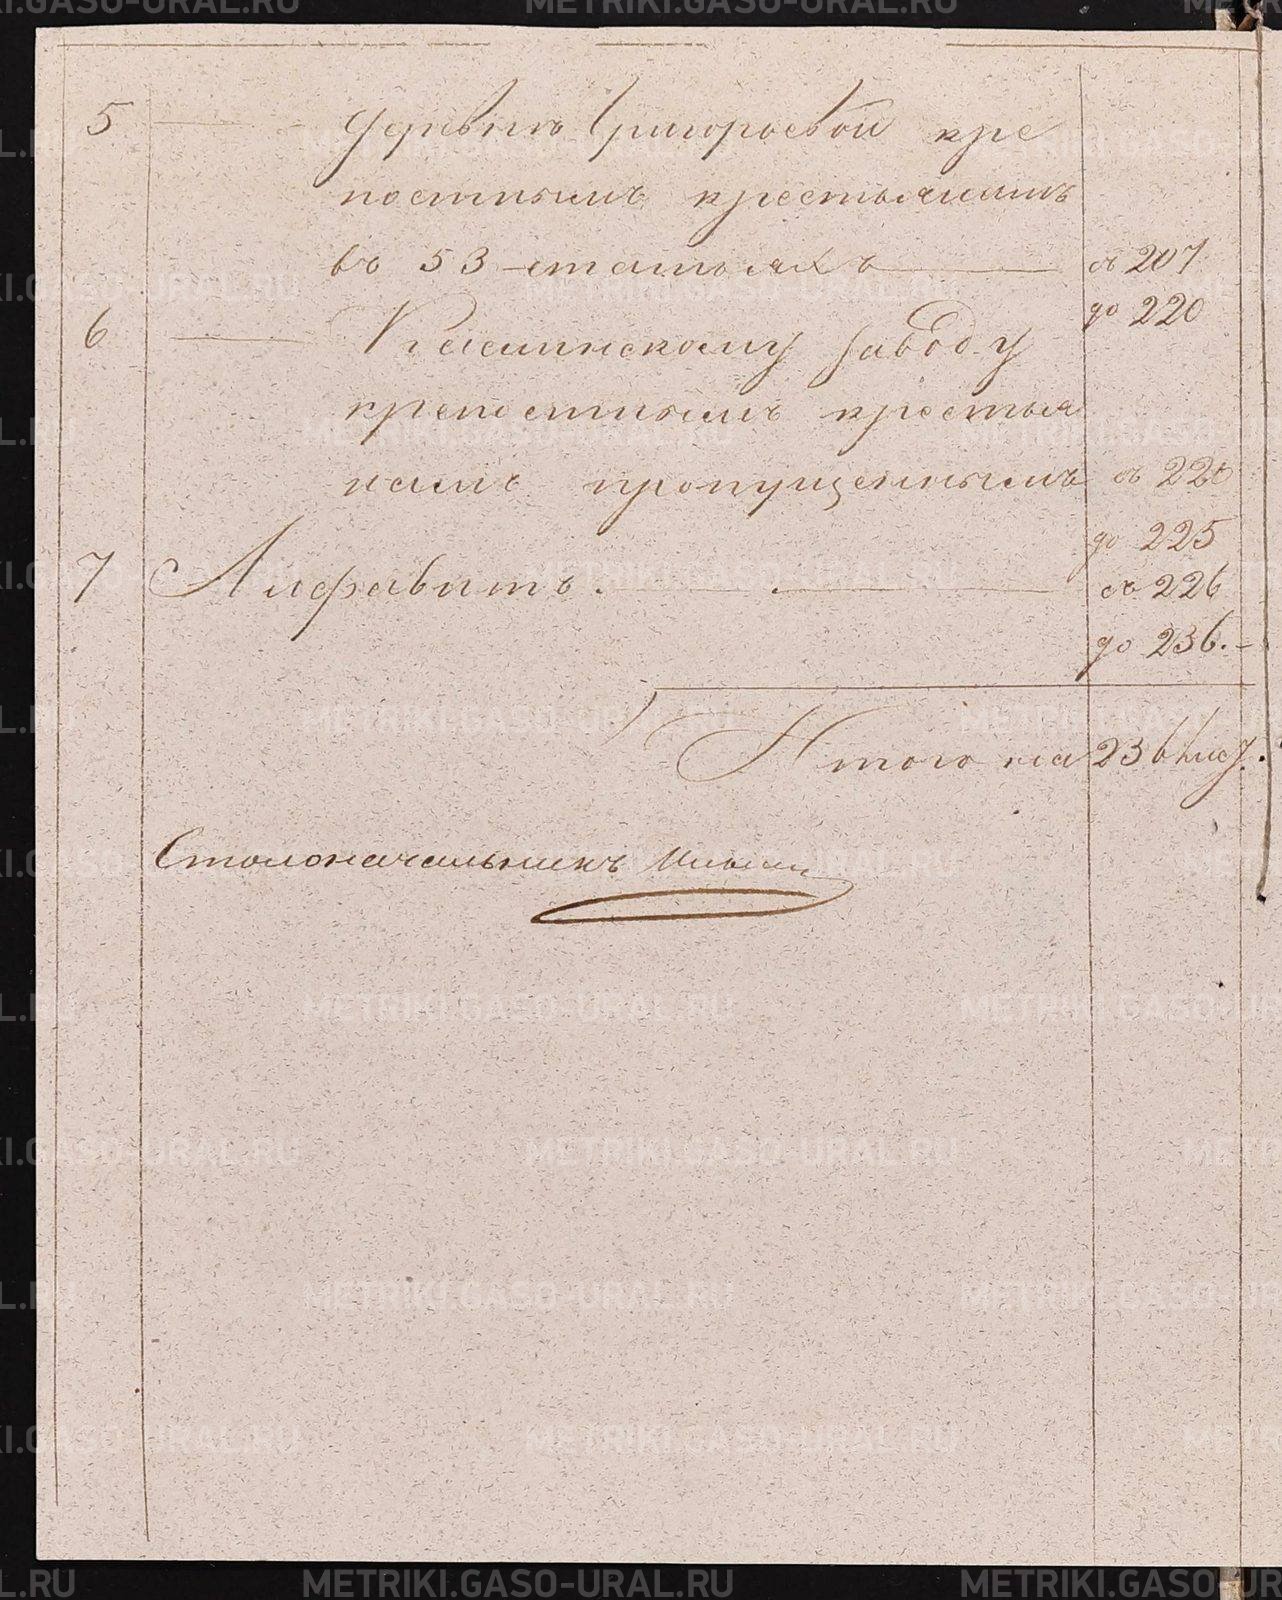 5 Деревни Григорьевой кре
постнымъ крестьянамъ
въ 53 статьяхъ съ 207
до 220
6 Каслинскому заводу
крепостнымъ крестья
намъ пропущеннымъ съ 220
до 225
7 Алфавитъ. съ 226
до 236.
Итого на 236 лис.
Столоначальникъ